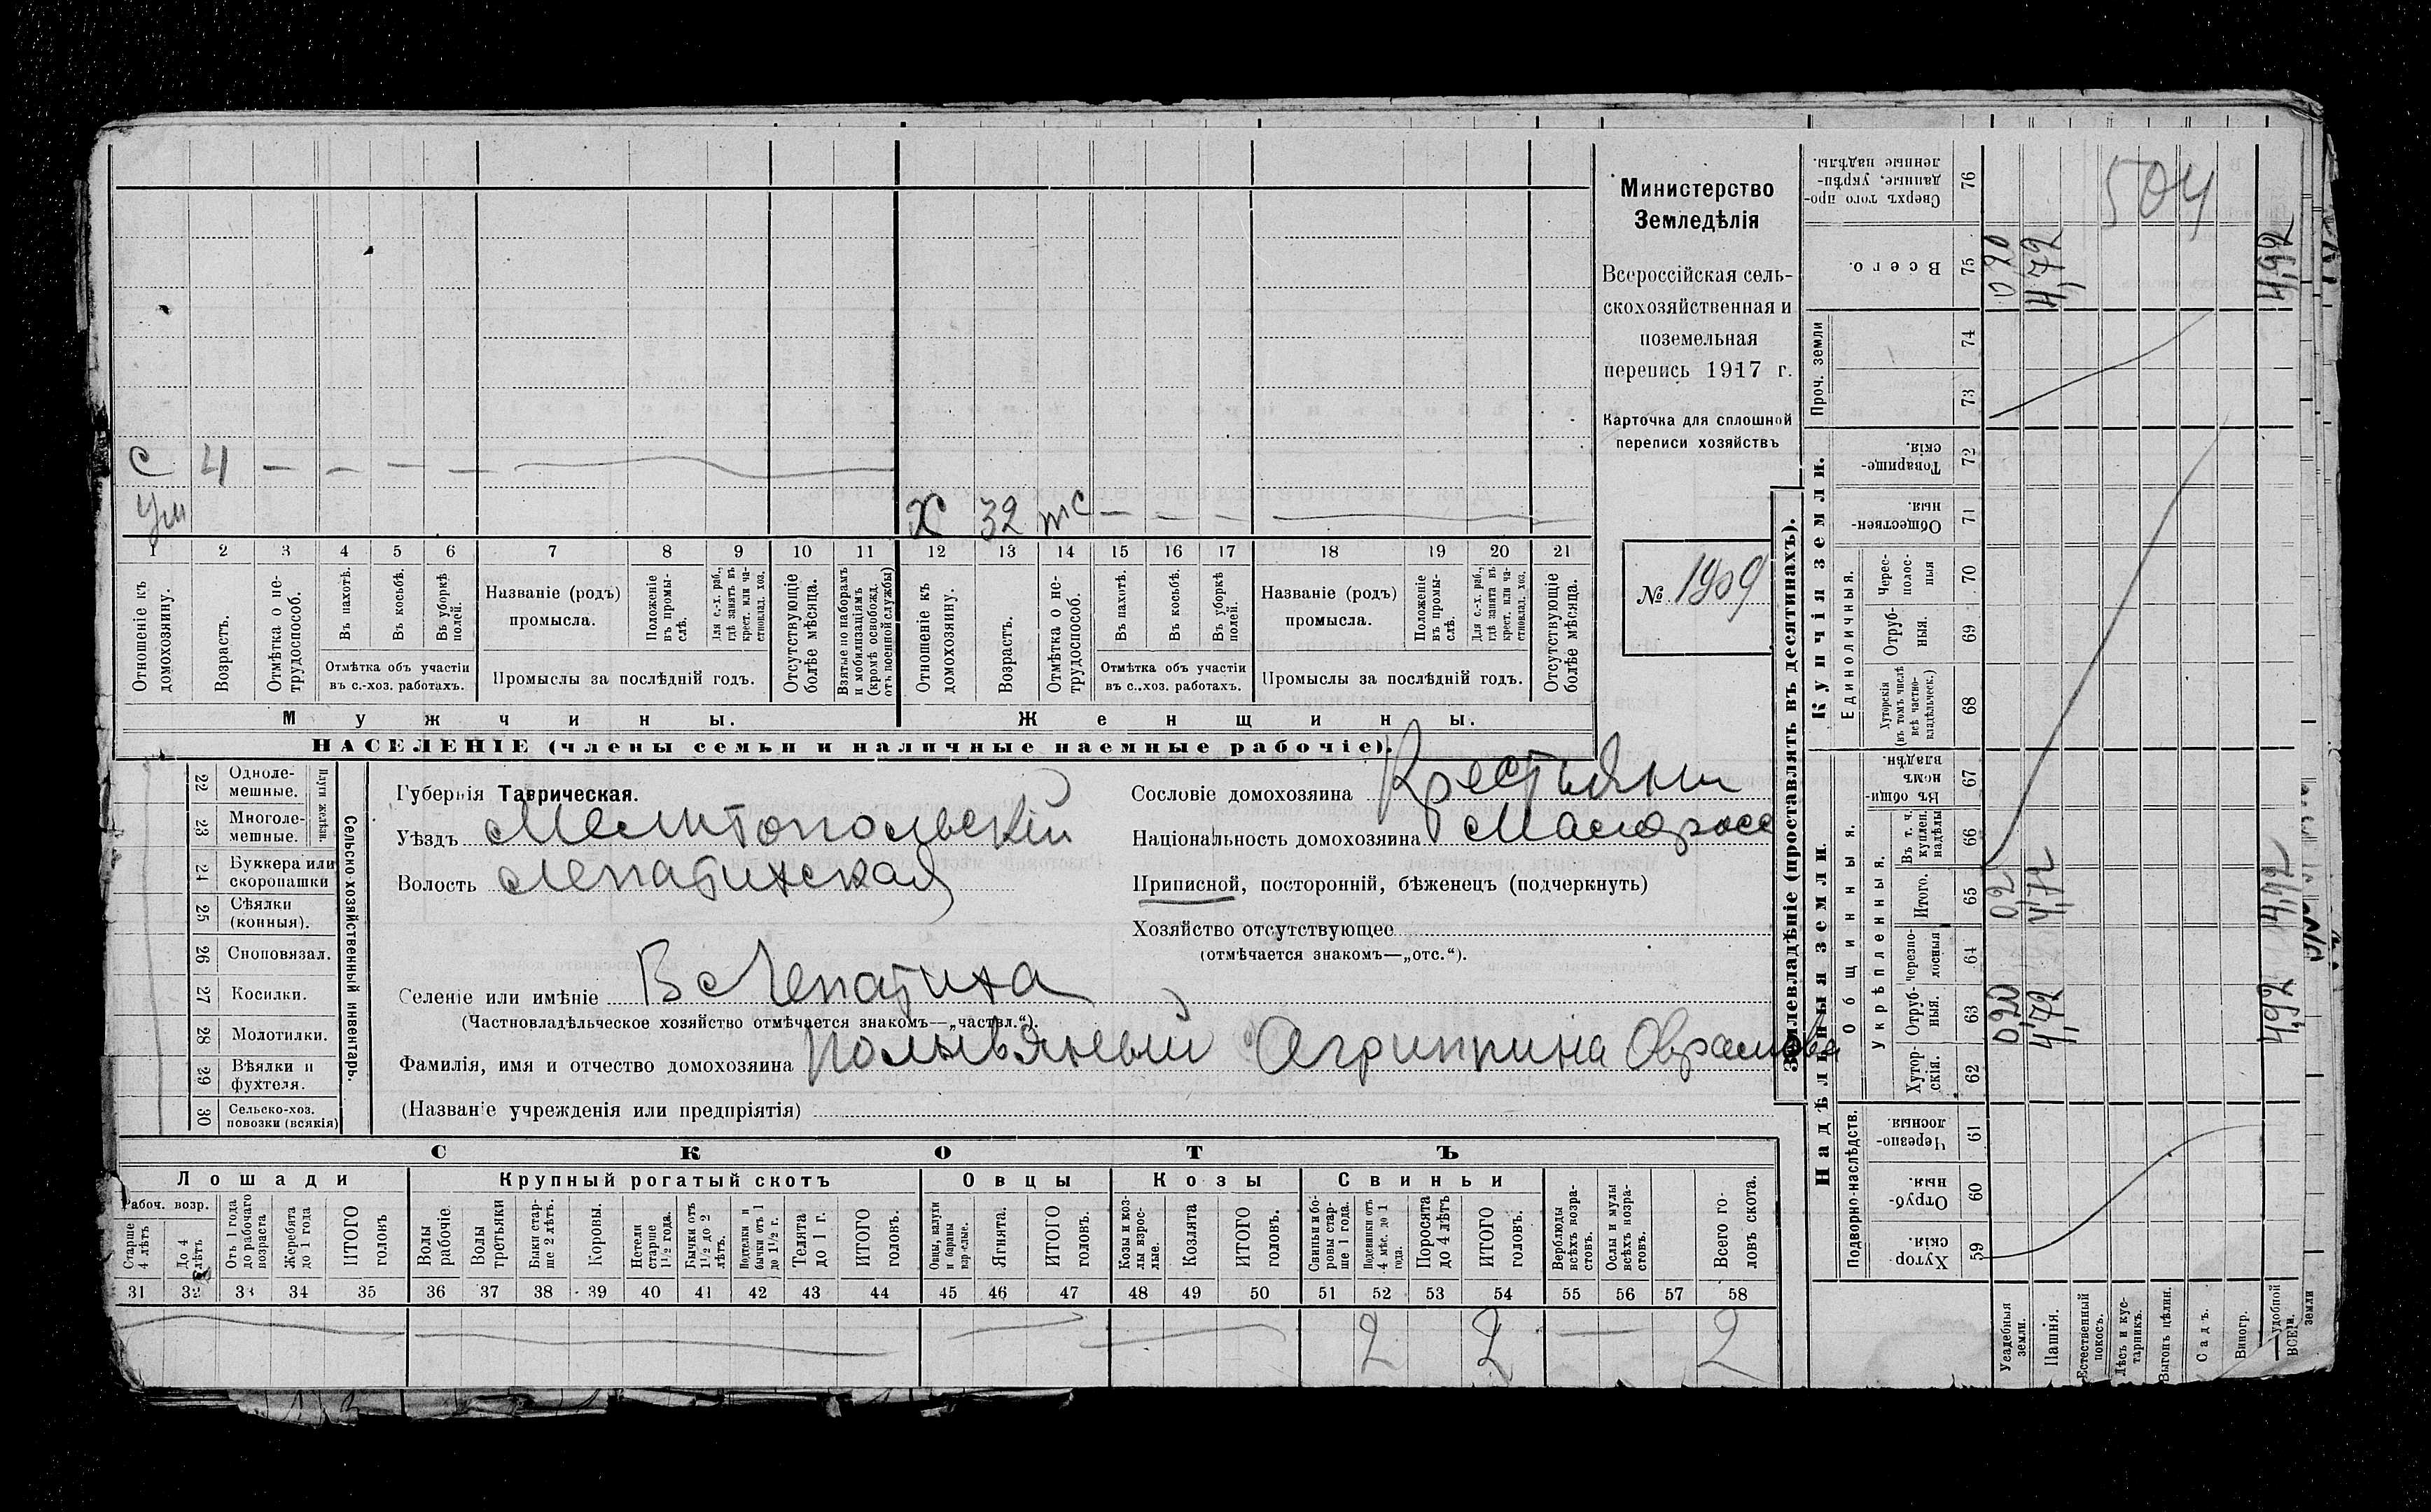 С 4 — — — —
Ум Х 32 тс — — —
1 2 3 4 5 6 7 8 9 10 11 12 13 14 15 16 17 18 19 20 21
Отношеніе къ домохозяину.
Возрастъ.
Отмѣтка о нетрудоспособ.
Въ пахотѣ.
Въ косьбѣ.
Въ уборкѣ полей.
Отмѣтка объ участіи
въ с.-хоз. работахъ.
Названіе (родъ)
промысла.
Положеніе въ промыслѣ.
Для с.-х. раб., гдѣ занятъ въ крест. или частновлад. хоз.
Промыслы за послѣдній годъ.
Отсутствующіе болѣе мѣсяца.
Взятые по наборамъ и мобилизаціямъ (кромѣ освобожд. отъ военной службы)
Отношеніе къ домохозяину.
Возрастъ.
Отмѣтка о нетрудоспособ.
Въ пахотѣ.
Въ косьбѣ.
Въ уборкѣ полей.
Отмѣтка объ участіи
въ с..хоз. работахъ.
Названіе (родъ)
промысла.
Положеніе въ промыслѣ.
Для с.-х. раб., гдѣ занята въ крест. или частновлад. хоз.
Промыслы за послѣдній годъ.
Отсутствующіе болѣе мѣсяца.
Мужчины. Женщины.
НАСЕЛЕНІЕ (члены семьи и наличные наемные рабочіе).
Министерство
Земледѣлія
Всероссійская сель-
скохозяйственная и
поземельная
перепись 1917 г.
Карточка для сплошной
переписи хозяйствъ
№ 1909
22 Одноле-
мешные.
23 Многоле-
мешные.
Плуги желѣзн.
24 Буккера или
скоропашки
25 Сѣялки
(конныя).
26 Сноповязал.
27 Косилки.
28 Молотилки.
29 Вѣялки и
фухтеля.
30 Сельско-хоз.
повозки (всякія)
Сельско-хозяйственный инвентарь.
Губернія Таврическая.
Уѣздъ Мелитопольскій
Волость Лепатихская
Селеніе или имѣніе В Лепатиха
(Частновладѣльческое хозяйство отмѣчается знакомъ—„частвл.“).
Фамилія, имя и отчество домохозяина Полывяный Агриппина
(Названіе учрежденія или предпріятія)
Сословіе домохозяина Крестьянин
Національность домохозяина Малоросс
Приписной, посторонній, бѣженецъ (подчеркнуть)
Хозяйство отсутствующее
(отмѣчается знакомъ—„отс.“).
СКОТЪ
Лошади Крупный рогатый скотъ Овцы Козы Свиньи
Рабоч. возр.
Старше 4 лѣтъ
До 4 лѣтъ
Отъ 1 года до рабочаго возраста
Жеребята до 1 года
ИТОГО головъ
Волы рабочіе.
Волы третьяки
Быки старше 2 лѣтъ.
Коровы.
Нетели старше 1½ года.
Бычки отъ 1½ до 2 лѣтъ.
Подтелки и бычки отъ 1 до 1½ г.
Телята до 1 г.
ИТОГО головъ.
Овцы, валухи и бараны взрослые.
Ягнята.
ИТОГО головъ.
Козы и козлы взрослые.
Козлята
ИТОГО головъ.
Свиньи и боровы старше 1 года.
Подсвинки отъ 4 мѣс. до 1 года.
Поросята до 4 лѣтъ
ИТОГО головъ.
Верблюды всѣхъ возрастовъ.
Ослы и мулы всѣхъ возрастовъ.
Всего головъ скота.
31 32 33 34 35 36 37 38 39 40 41 42 43 44 45 46 47 48 49 50 51 52 53 54 55 56 57 58
2 2 — 2
Землевладѣніе (проставлять въ десятинахъ).
Купчія земли.
Надѣльныя земли.
Сверхъ того проданные, укрѣпленные надѣлы. 76
504
Всего. 75 0 20 4,72 4,92
Проч. земли 74 73
Товарищескія 72
Общественныя. 71
Единоличныя.
Чересполосныя 70
Отрубныя. 69
Хуторскія (въ томъ числѣ всѣ частновладѣльческ.) 68
Общинныя.
Въ общинномъ владѣн. 67
Укрѣпленныя.
Въ т. ч. куплен. надѣлы 66
Итого. 65 02 4,72 4,92
Черезполосныя 64
Отрубныя. 63 020 4,72 4,92
Хуторскія. 62
Подворно-наслѣдств.
Черезполосныя. 61
Отрубныя. 60
Хуторскія. 59
Усадебныя земли.
Пашня.
Естественный покосъ.
Лѣсъ и кустарникъ.
Выгонъ цѣлин.
Садъ.
Виногр.
удобной земли